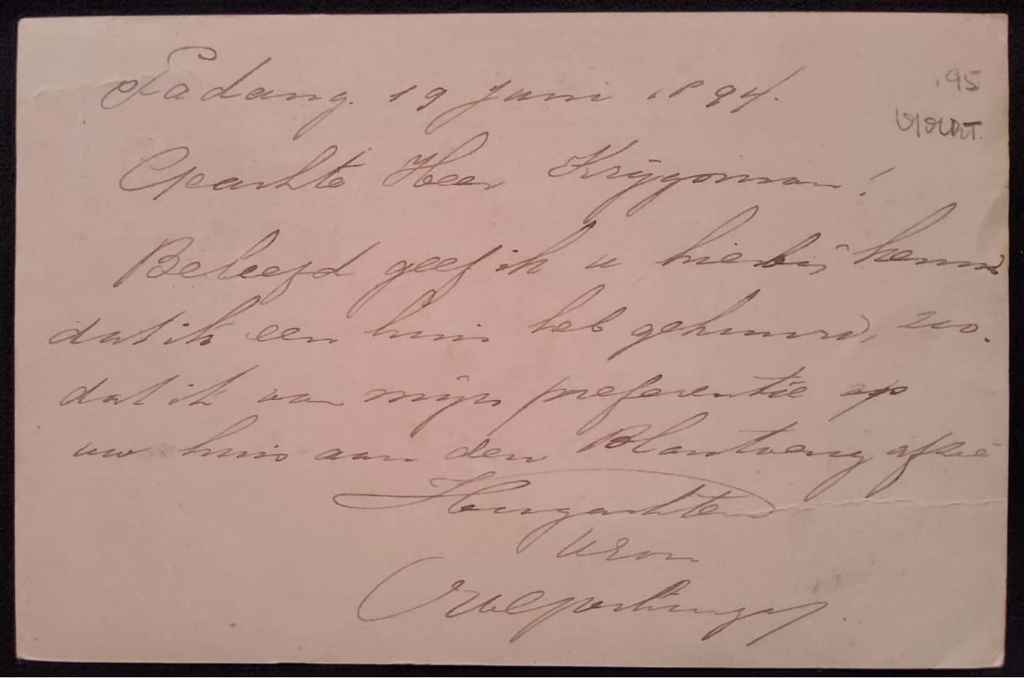 Padang. 19 Juni 1894.
.95
Geachte Heer Krijgsman!
Beleefd geef ik u hierbij kennis
dat ik een huis heb gehuurd, zoo.
dat ik van mijn preferentie op
uw huis aan den afzie
Hoogachtend